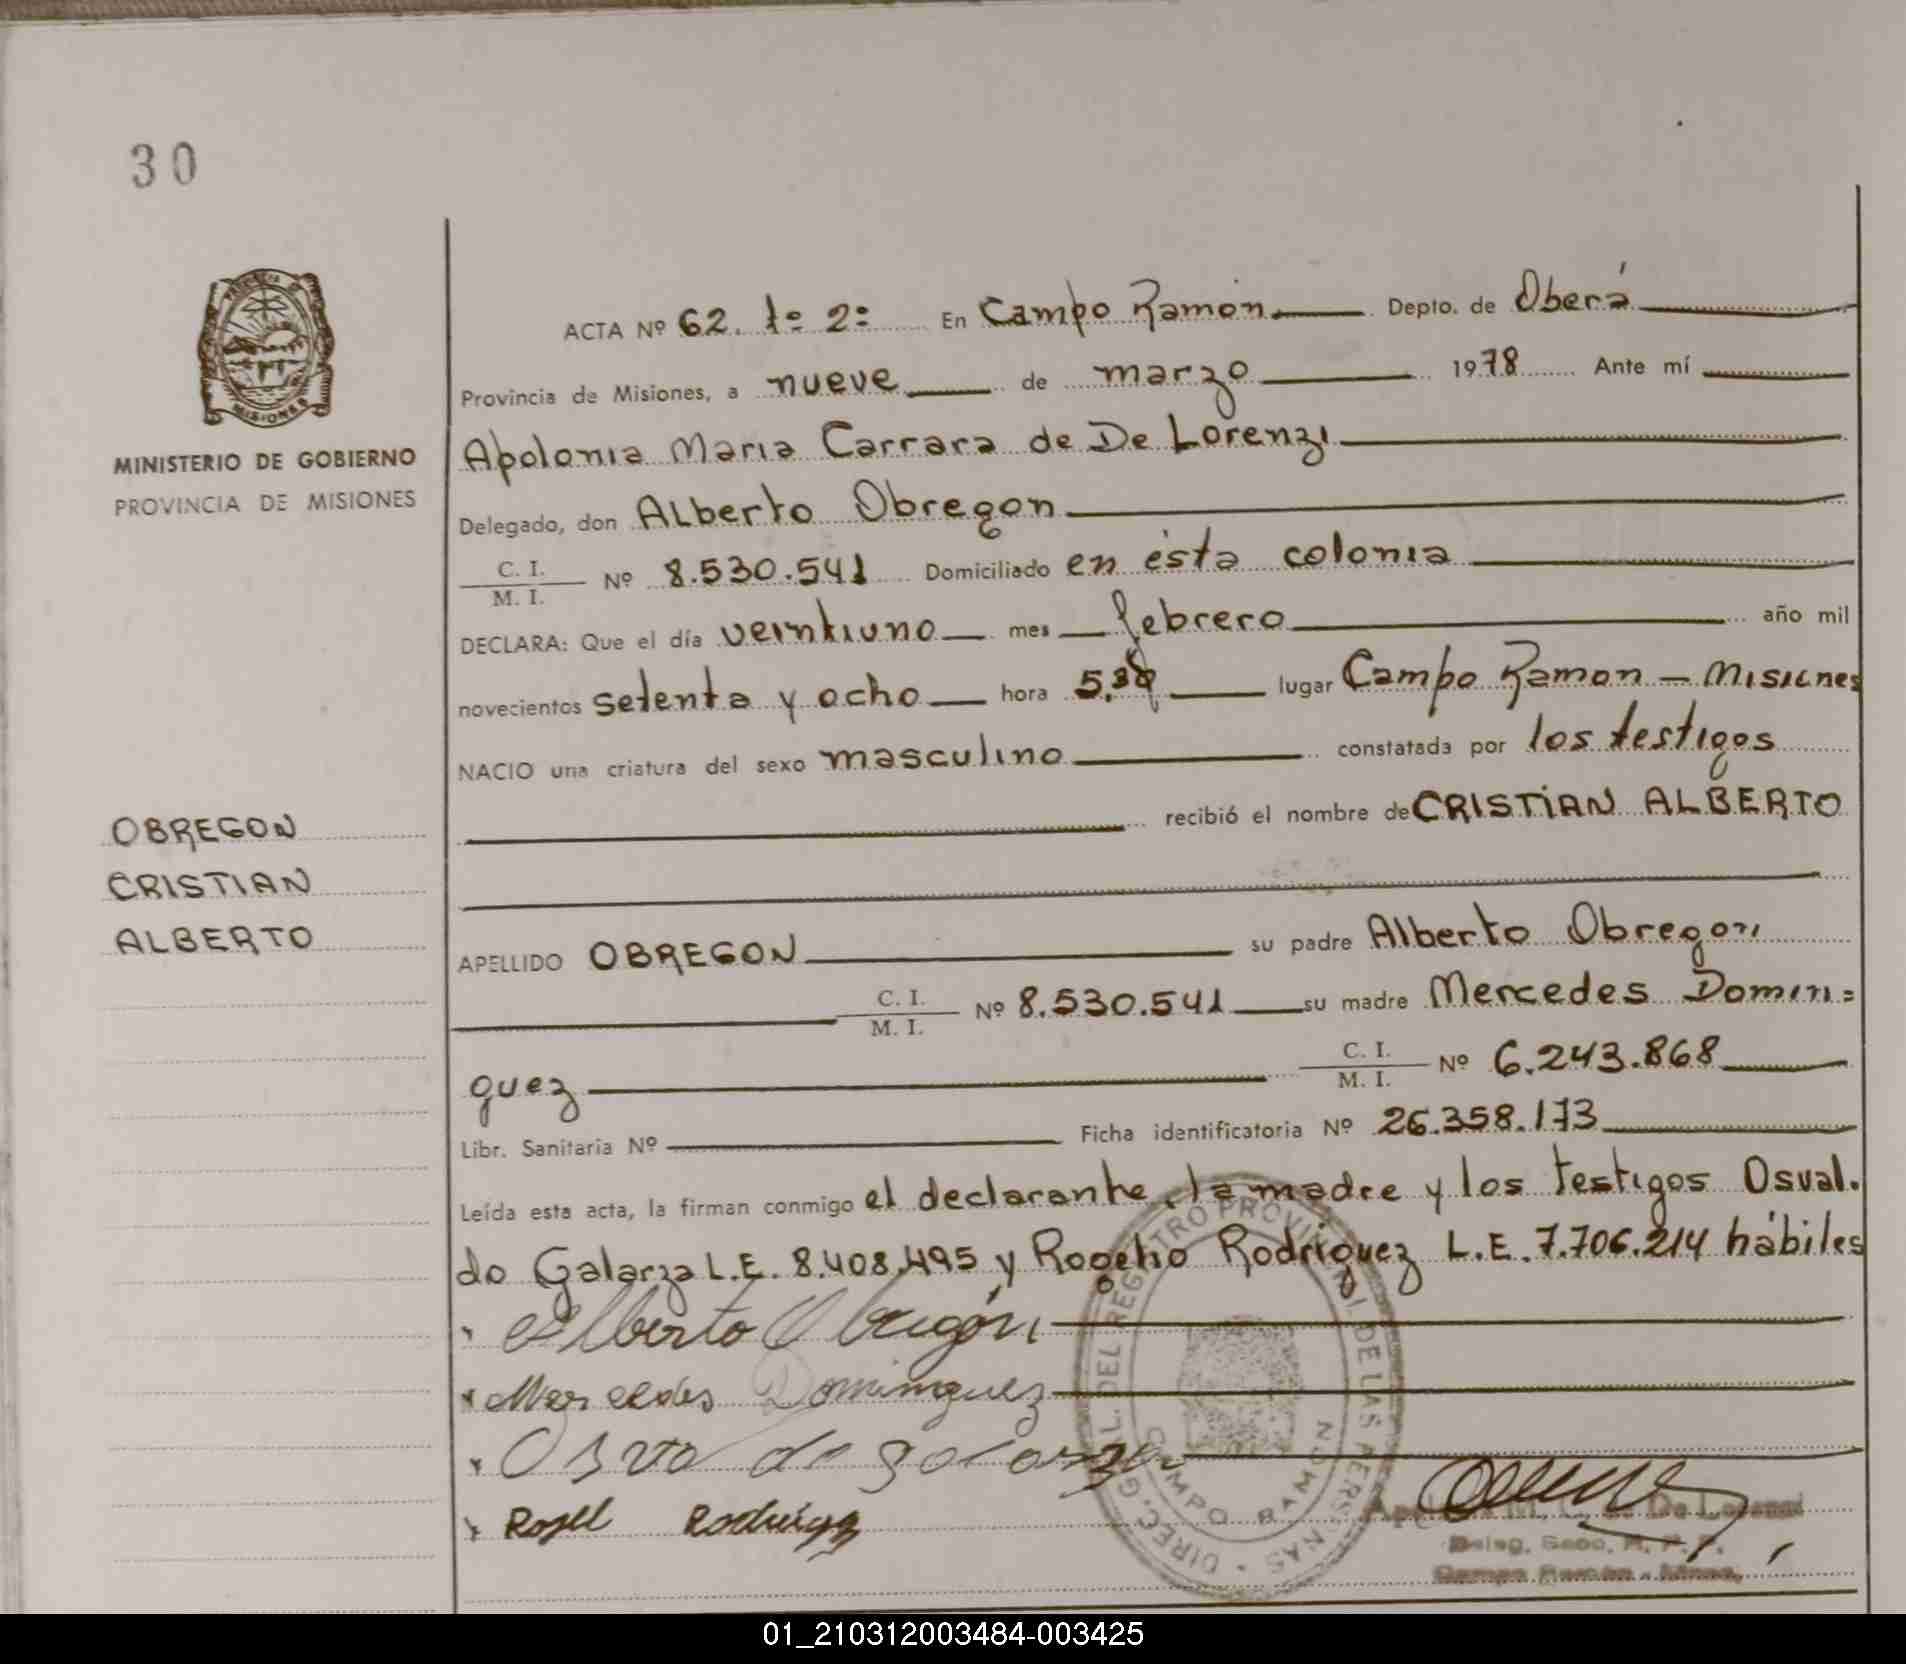 30
MISIONES
MINISTERIO DE GOBIERNO
PROVINCIA DE MISIONES
OBREGON
CRISTIAN
ALBERTO
ACTA Nº 62. 1º 2º En Campo Ramón Depto. de Oberá
Provincia de Misiones, a nueve de marzo 1978 Ante mí
Apolonia Maria Carrara de De Lorenzi
Delegado, don Alberto Obregon
C. I.
M. I. Nº 8.530.541 Domiciliado en ésta colonia
DECLARA: Que el día veintiuno mes febrero año mil
novecientos setenta y ocho hora lugar Campo Ramon - Misiones
NACIO una criatura del sexo masculino constatada por los testigos
recibió el nombre de CRISTIAN ALBERTO
APELLIDO OBREGON su padre Alberto Obregon
C. I.
M. I. Nº 8.530.541 su madre Mercedes Domin=
guez C. I.
M. I. Nº 6.243.868
Libr. Sanitaria Nº Ficha identificatoria Nº 26.358.173
Leída esta acta, la firman conmigo el declarante, la madre y los testigos Osval.
do Galarza L.E. 8.408.495 y Rogelio Rodriguez L.E. 7.706.214 hábiles
Alberto Obregón
Mercedes Dominguez
Osvaldo galarza
Rodriguez
DIREC. GRAL. DEL REGISTRO PROVINCIAL DE LAS PERSONAS
CAMPO RAMON
De Lorenzi
Campo Ramón - Mnes.
01_210312003484-003425